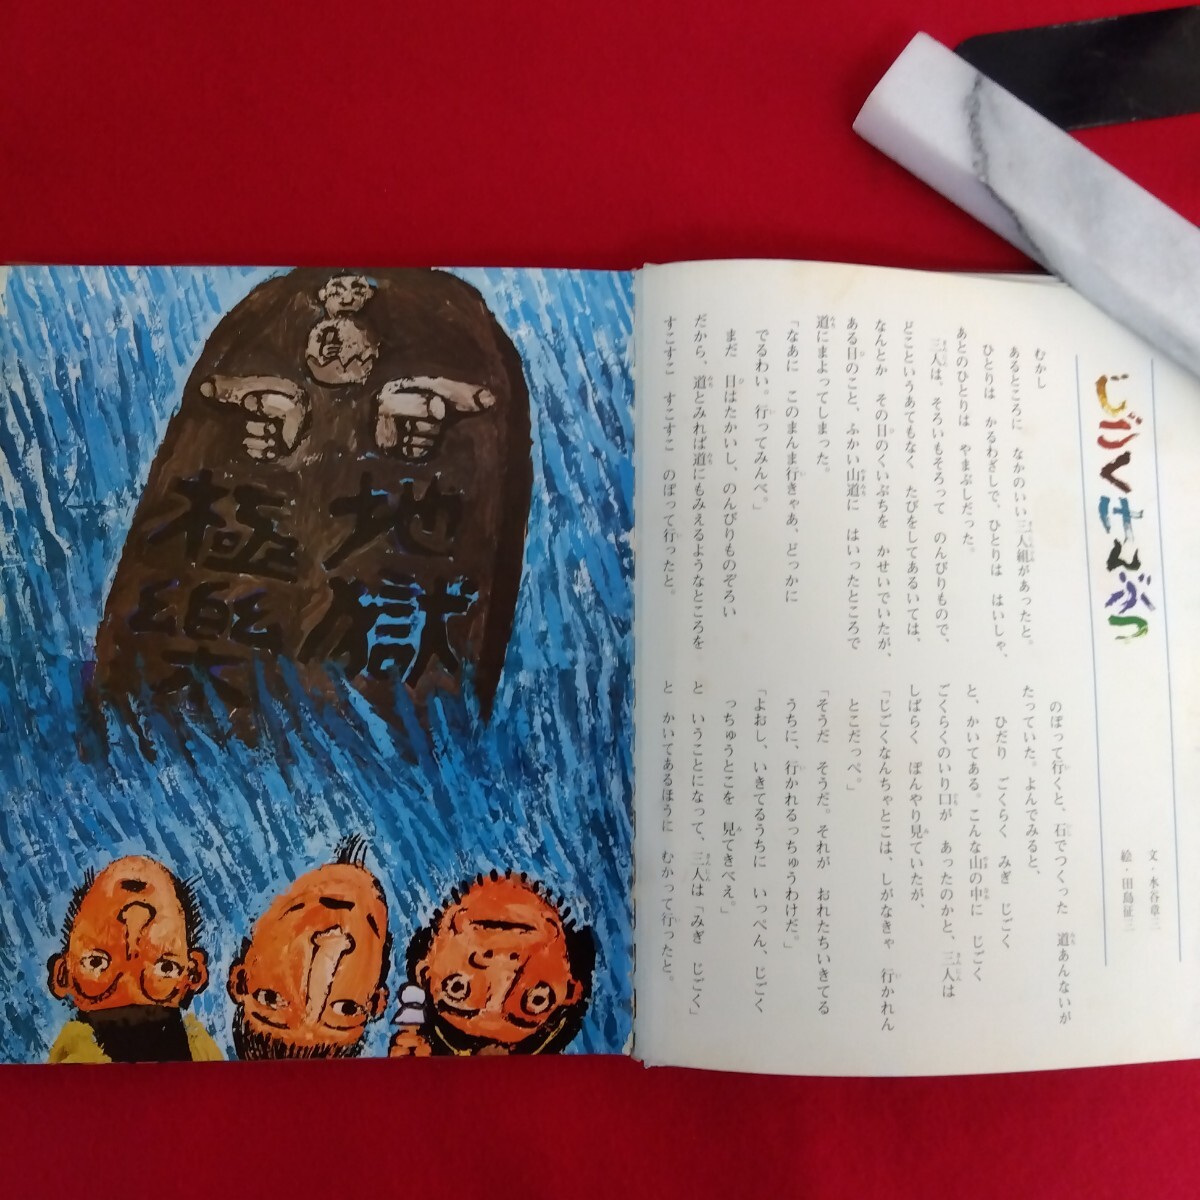 じごくけんぶつ
文・水谷章三
絵・田島征三
むかし
あるところに　なかのいい三人組があったと。
ひとりは　かるわざしで、ひとりは　はいしゃ、
あとのひとりは　やまぶしだった。
三人は、そろいもそろって　のんびりもので、
どこというあてもなく　たびをしてあるいては、
なんとか　その日のくいぶちを　かせいでいたが、
ある日のこと、ふかい山道に　はいったところで
道にまよってしまった。
「なあに　このまんま行きゃあ、どっかに
でるわい。行ってみんべ。」
まだ　日はたかいし、のんびりものぞろい
だから、道とみれば道にもみえるようなところを
すこすこ　すこすこ　のぼって行ったと。
のぼって行くと、石でつくった　道あんないが
たっていた。よんでみると、
ひだり　ごくらく　みぎ　じごく
と、かいてある。こんな山の中に　じごく
ごくらくのいり口が　あったのかと、三人は
しばらく　ぼんやり見ていたが、
「じごくなんちゃとこは、しがなきゃ　行かれん
とこだっぺ。」
「そうだ　そうだ。それが　おれたちいきてる
うちに、行かれるっちゅうわけだ。」
「よおし、いきてるうちに　いっぺん、じごく
っちゅうとこを　見てきべえ。」
と　いうことになって、三人は「みぎ　じごく」
と　かいてあるほうに　むかって行ったと。
地獄
極楽